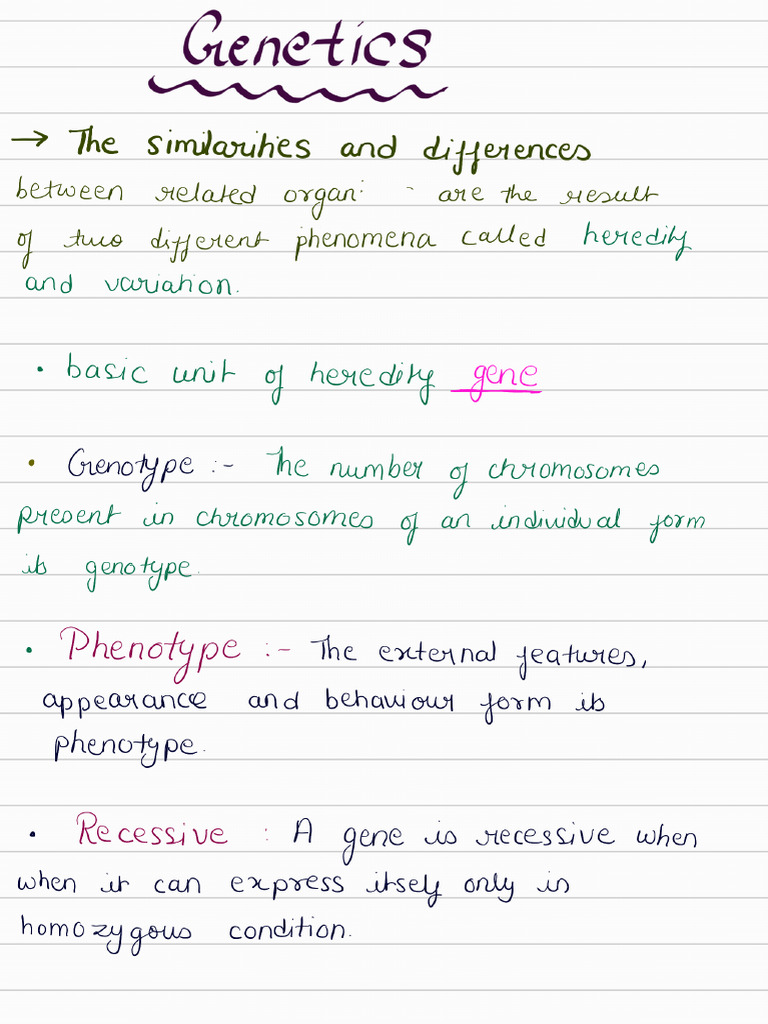 Genetics
→ The similarities and differences
between related organ are the result
of two different phenomena called heredity
and variation.
• basic unit of heredity gene
• Genotype :- The number of chromosomes
present in chromosomes of an individual form
its genotype.
• Phenotype :- The external features,
appearance and behaviour form its
phenotype.
• Recessive : A gene is recessive when
when it can express itself only in
homozygous condition.